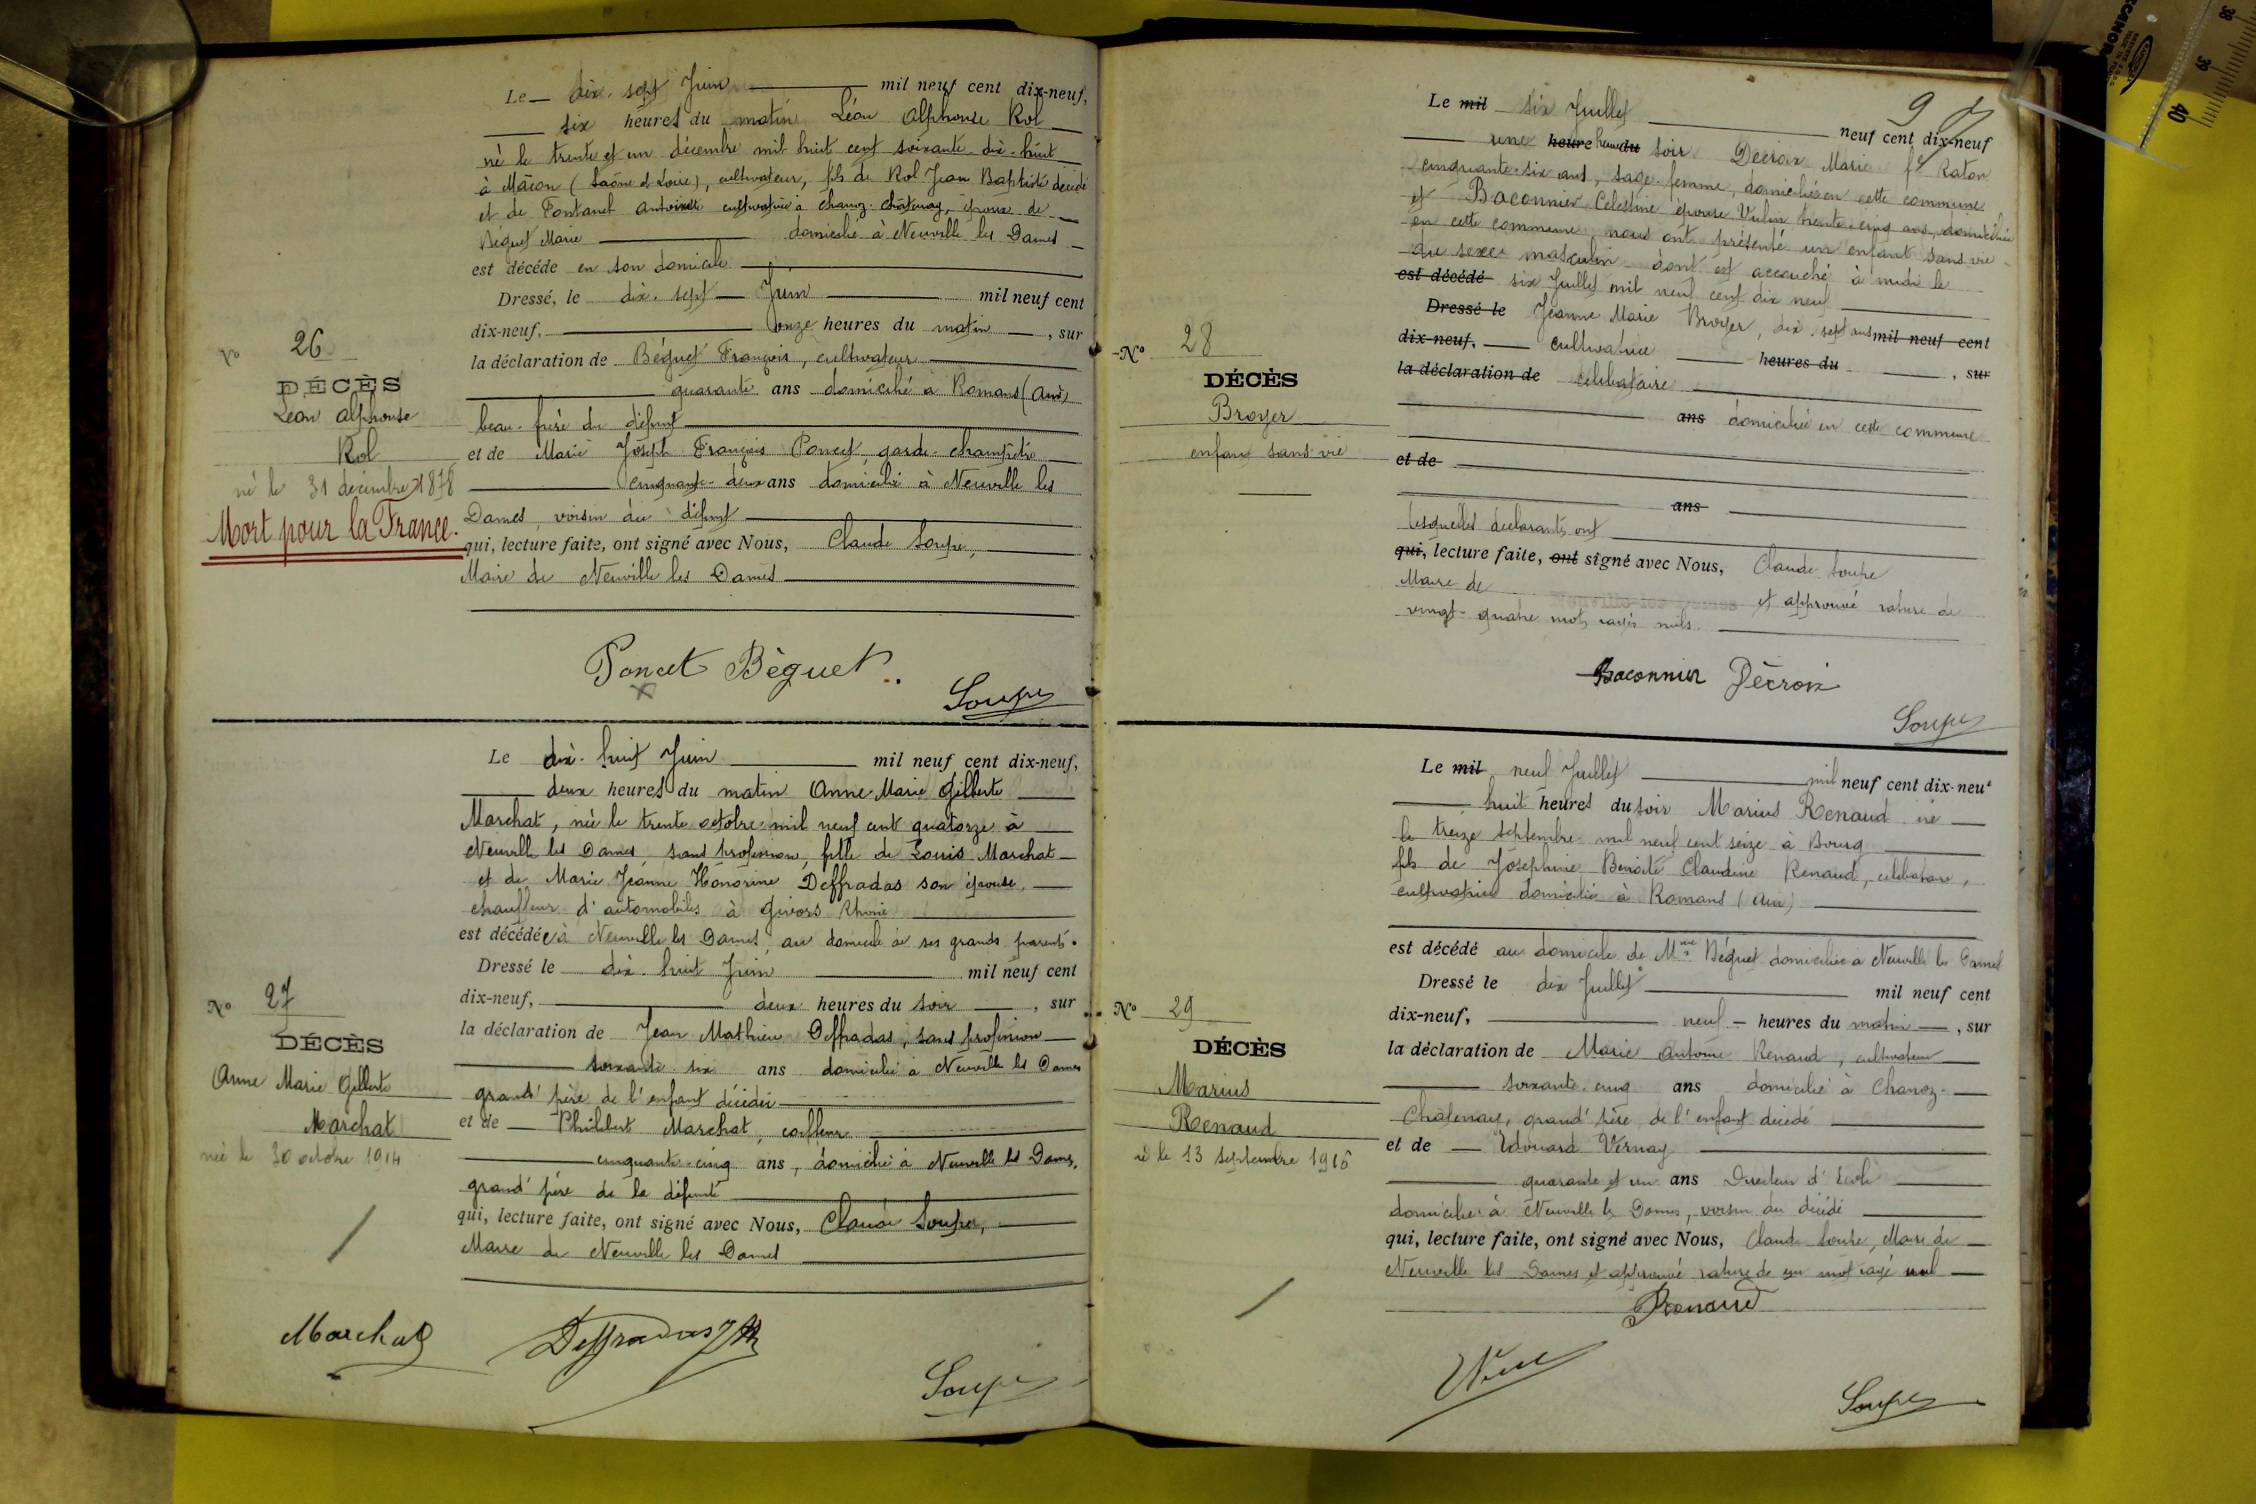 Le dix-sept Juin mil neuf cent dix-neuf,
six heures du matin Léon Alphonse Rol
né le trente et un décembre mil huit cent soixante-dix-huit
à Mâcon (Saône et Loire), cultivateur, fils de Rol Jean Baptiste décédé
et de Fontanel Antoinette cultivatrice à Chanoz-Châtenay, époux de
Béguet Marie domicilié à Neuville les Dames
est décédé en son domicile
Dressé, le dix-sept Juin mil neuf cent
dix-neuf, onze heures du matin, sur
la déclaration de Béguet François, cultivateur
quarante ans domicilié à Romans (Ain)
beau-frère du défunt
et de Marie Joseph François Poncet, garde-champêtre
cinquante-deux ans domicilié à Neuville les
Dames, voisin du défunt
qui, lecture faite, ont signé avec Nous, Claude Soupe,
Maire de Neuville les Dames
No 26
DÉCÈS
Léon Alphonse
Rol
né le 31 décembre 1878
Mort pour la France.
Poncet Béguet
Soupe
Le dix-huit Juin mil neuf cent dix-neuf,
deux heures du matin Anne Marie Gilberte
Marchat, née le trente octobre mil neuf cent quatorze à
Neuville les Dames, sans profession, fille de Louis Marchat
et de Marie Jeanne Honorine Deffradas son épouse,
chauffeur d'automobiles à Givors Rhône
est décédée à Neuville les Dames, au domicile de ses grands parents.
Dressé le dix-huit Juin mil neuf cent
dix-neuf, deux heures du soir, sur
la déclaration de Jean Mathieu Deffradas, sans profession
soixante-six ans domicilié à Neuville les Dames
grand'père de l'enfant décédée
et de Philibert Marchat, coiffeur
cinquante-cinq ans, domicilié à Neuville les Dames,
grand'père de la défunte
qui, lecture faite, ont signé avec Nous, Claude Soupe,
Maire de Neuville les Dames
No 27
DÉCÈS
Anne Marie Gilberte
Marchat
née le 30 octobre 1914
Marchat Deffradas JM
Soupe
9
Le mil six Juillet neuf cent dix-neuf
une heure heure du soir Decroix Marie fe Raton
cinquante-six ans, sage-femme, domiciliée en cette commune
et Baconnier Celestine épouse Vulin trente-cinq ans, domiciliée
en cette commune nous ont présenté un enfant sans vie
du sexe masculin dont est accouché à midi le
est décédé six Juillet mil neuf cent dix neuf
Dressé le Jeanne Marie Broyer, dix-sept ans mil neuf cent
dix-neuf, cultivatrice heures du, sur
la déclaration de célibataire
ans domiciliée en cette commune
et de
ans
lesquelles déclarants ont
qui, lecture faite, ont signé avec Nous, Claude Soupe
Maire de Neuville-les-Dames et approuvé rature de
vingt-quatre mots rayés nuls.
No 28
DÉCÈS
Broyer
enfant sans vie
Baconnier Décroix
Soupe
Le mil neuf Juillet mil neuf cent dix-neuf
huit heures du soir Marius Renaud né
le treize septembre mil neuf cent seize à Bourg
fils de Joséphine Benoite Claudine Renaud, célibataire,
cultivatrice domiciliée à Romans (Ain)
est décédé au domicile de Mme Béguet domiciliée à Neuville les Dames
Dressé le dix Juillet mil neuf cent
dix-neuf, neuf heures du matin, sur
la déclaration de Marie Antoine Renaud, cultivateur
soixante-cinq ans domicilié à Chanoz-
Châtenay, grand'père de l'enfant décédé
et de Edouard Vernay
quarante et un ans Directeur d'Ecole
domicilié à Neuville les Dames, voisin du décédé
qui, lecture faite, ont signé avec Nous, Claude Soupe, Maire de
Neuville les Dames et approuvé rature de un mot rayé nul
No 29
DÉCÈS
Marius
Renaud
né le 13 septembre 1916
Renaud
Soupe